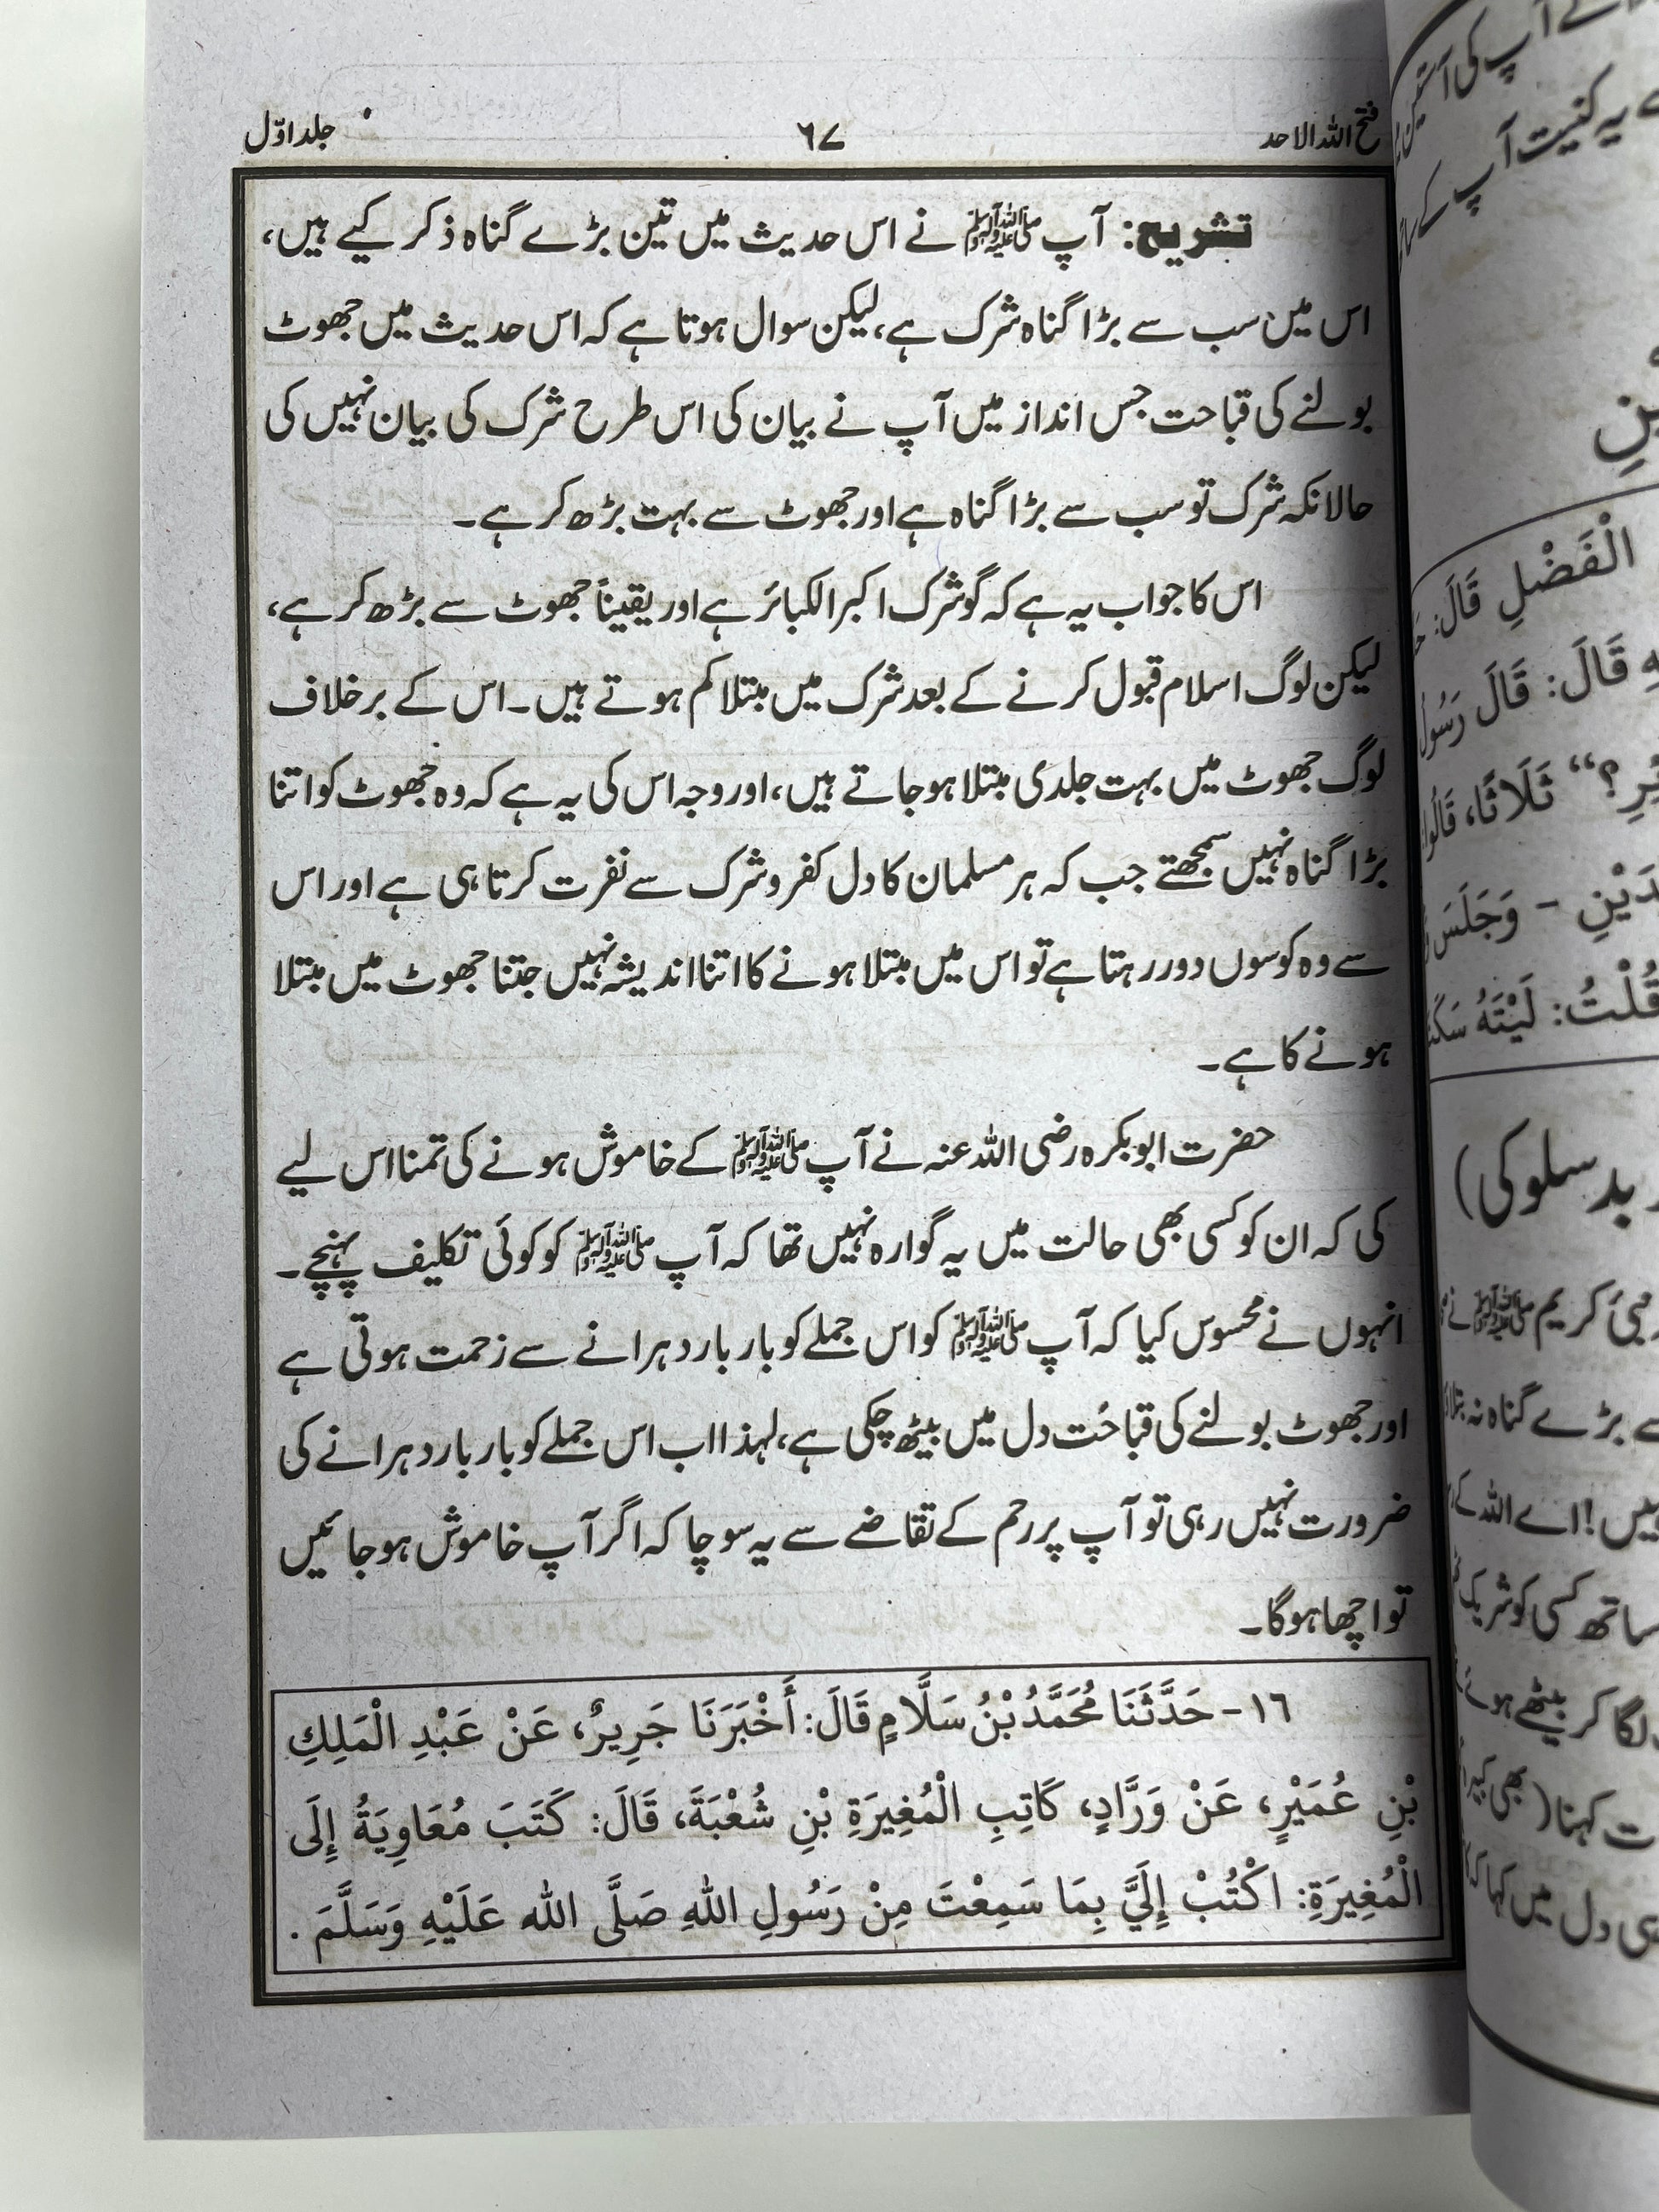 فتح اللہ الاحد ۶۷ جلد اوّل
تشریح: آپ ﷺ نے اس حدیث میں تین بڑے گناہ ذکر کیے ہیں،
اس میں سب سے بڑا گناہ شرک ہے، لیکن سوال ہوتا ہے کہ اس حدیث میں جھوٹ
بولنے کی قباحت جس انداز میں آپ نے بیان کی اس طرح شرک کی بیان نہیں کی
حالانکہ شرک تو سب سے بڑا گناہ ہے اور جھوٹ سے بہت بڑھ کر ہے۔
اس کا جواب یہ ہے کہ گو شرک اکبر الکبائر ہے اور یقیناً جھوٹ سے بڑھ کر ہے،
لیکن لوگ اسلام قبول کرنے کے بعد شرک میں مبتلا کم ہوتے ہیں۔ اس کے برخلاف
لوگ جھوٹ میں بہت جلدی مبتلا ہو جاتے ہیں، اور وجہ اس کی یہ ہے کہ وہ جھوٹ کو اتنا
بڑا گناہ نہیں سمجھتے جب کہ ہر مسلمان کا دل کفر و شرک سے نفرت کرتا ہی ہے اور اس
سے وہ کوسوں دور رہتا ہے تو اس میں مبتلا ہونے کا اتنا اندیشہ نہیں جتنا جھوٹ میں مبتلا
ہونے کا ہے۔
حضرت ابو بکرہ رضی اللہ عنہ نے آپ ﷺ کے خاموش ہونے کی تمنا اس لیے
کی کہ ان کو کسی بھی حالت میں یہ گوارہ نہیں تھا کہ آپ ﷺ کو کوئی تکلیف پہنچے۔
انہوں نے محسوس کیا کہ آپ ﷺ کو اس جملے کو بار بار دہرانے سے زحمت ہوتی ہے
اور جھوٹ بولنے کی قباحت دل میں بیٹھ چکی ہے، لہذا اب اس جملے کو بار بار دہرانے کی
ضرورت نہیں رہی تو آپ پر رحم کے تقاضے سے یہ سوچا کہ اگر آپ خاموش ہو جائیں
تو اچھا ہوگا۔
١٦- حَدَّثَنَا مُحَمَّدُ بْنُ سَلَّامٍ قَالَ: أَخْبَرَنَا جَرِيرٌ، عَنْ عَبْدِ الْمَلِكِ
بْنِ عُمَيْرٍ، عَنْ وَرَّادٍ، كَاتِبِ الْمُغِيرَةِ بْنِ شُعْبَةَ، قَالَ: كَتَبَ مُعَاوِيَةُ إِلَى
الْمُغِيرَةِ: اكْتُبْ إِلَيَّ بِمَا سَمِعْتَ مِنْ رَسُولِ اللهِ صَلَّى الله عَلَيْهِ وَسَلَّمَ .
آپ کی
یہ کنیت آپ کے
الْفَضْلِ قَالَ:
قَالَ: قَالَ رَسُولُ
ثَلَاثًا، قَالُوا
وَجَلَسَ
قُلْتُ: لَيْتَهُ
بدسلوکی)
کریم ﷺ نے
بڑے گناہ نہ
اے اللہ کے
ساتھ کسی کو شریک
لگا کر بیٹھے ہوئے
کہنا (بھی
دل میں کہا